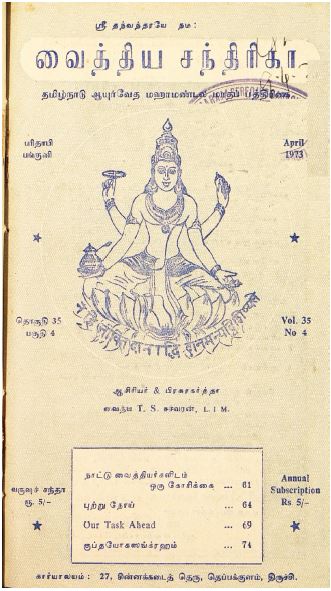 ஸ்ரீ தந்வந்தரயே நம:
வைத்திய சந்திரிகா
தமிழ்நாடு ஆயுர்வேத மஹாமண்டல மாதப் பத்திரிகை
பரிதாபி
பங்குனி
April
1973
தொகுதி 35
பகுதி 4
Vol. 35
No 4
ஆசிரியர் & பிரசுரகர்த்தா
வைத்ய T. S. ஈசுவரன், L I M.
நாட்டு வைத்தியர்களிடம்
ஒரு கோரிக்கை ... 61
புற்று நோய் ... 64
Our Task Ahead ... 69
குப்தயோகஸங்க்ரஹம் ... 74
வருஷ சந்தா
ரூ. 5/-
Annual
Subscription
Rs 5/-
கார்யாலயம் : 27, சின்னக்கடைத் தெரு, தெப்பக்குளம், திருச்சி.